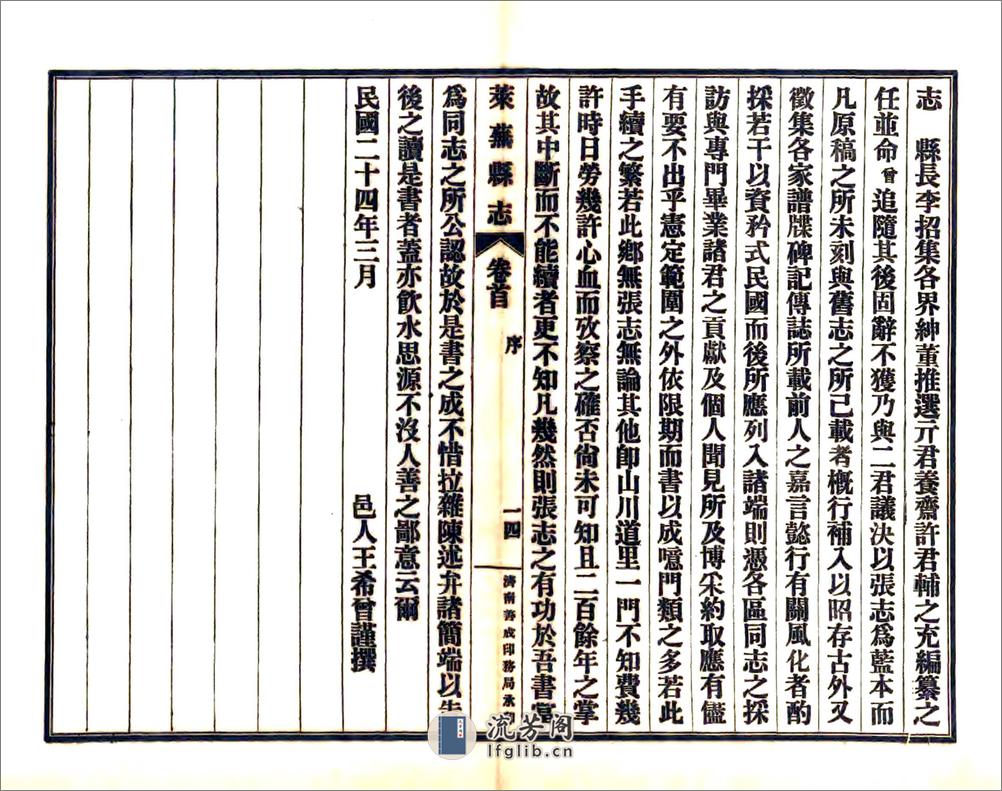 志　縣長李招集各界紳董推選亓君養齋許君輔之充編纂之
任並命曾追隨其後固辭不獲乃與二君議決以張志爲藍本而
凡原稿之所未刻與舊志之所已載者概行補入以昭存古外又
徵集各家譜牒碑記傳誌所載前人之嘉言懿行有關風化者酌
採若干以資矜式民國而後所應列入諸端則憑各區同志之採
訪與專門畢業諸君之貢獻及個人聞見所及博采約取應有儘
有要不出乎憲定範圍之外依限期而書以成噫門類之多若此
手續之繁若此鄉無張志無論其他卽山川道里一門不知費幾
許時日勞幾許心血而攷察之確否尙未可知且二百餘年之掌
故其中斷而不能續者更不知凡幾然則張志之有功於吾書當
萊蕪縣志　卷首　序　一四　濟南善成印務局承
爲同志之所公認故於是書之成不惜拉雜陳述弁諸簡端以告
後之讀是書者蓋亦飮水思源不沒人善之鄙意云爾
民國二十四年三月　邑人王希曾謹撰
流芳阁
lfglib.cn